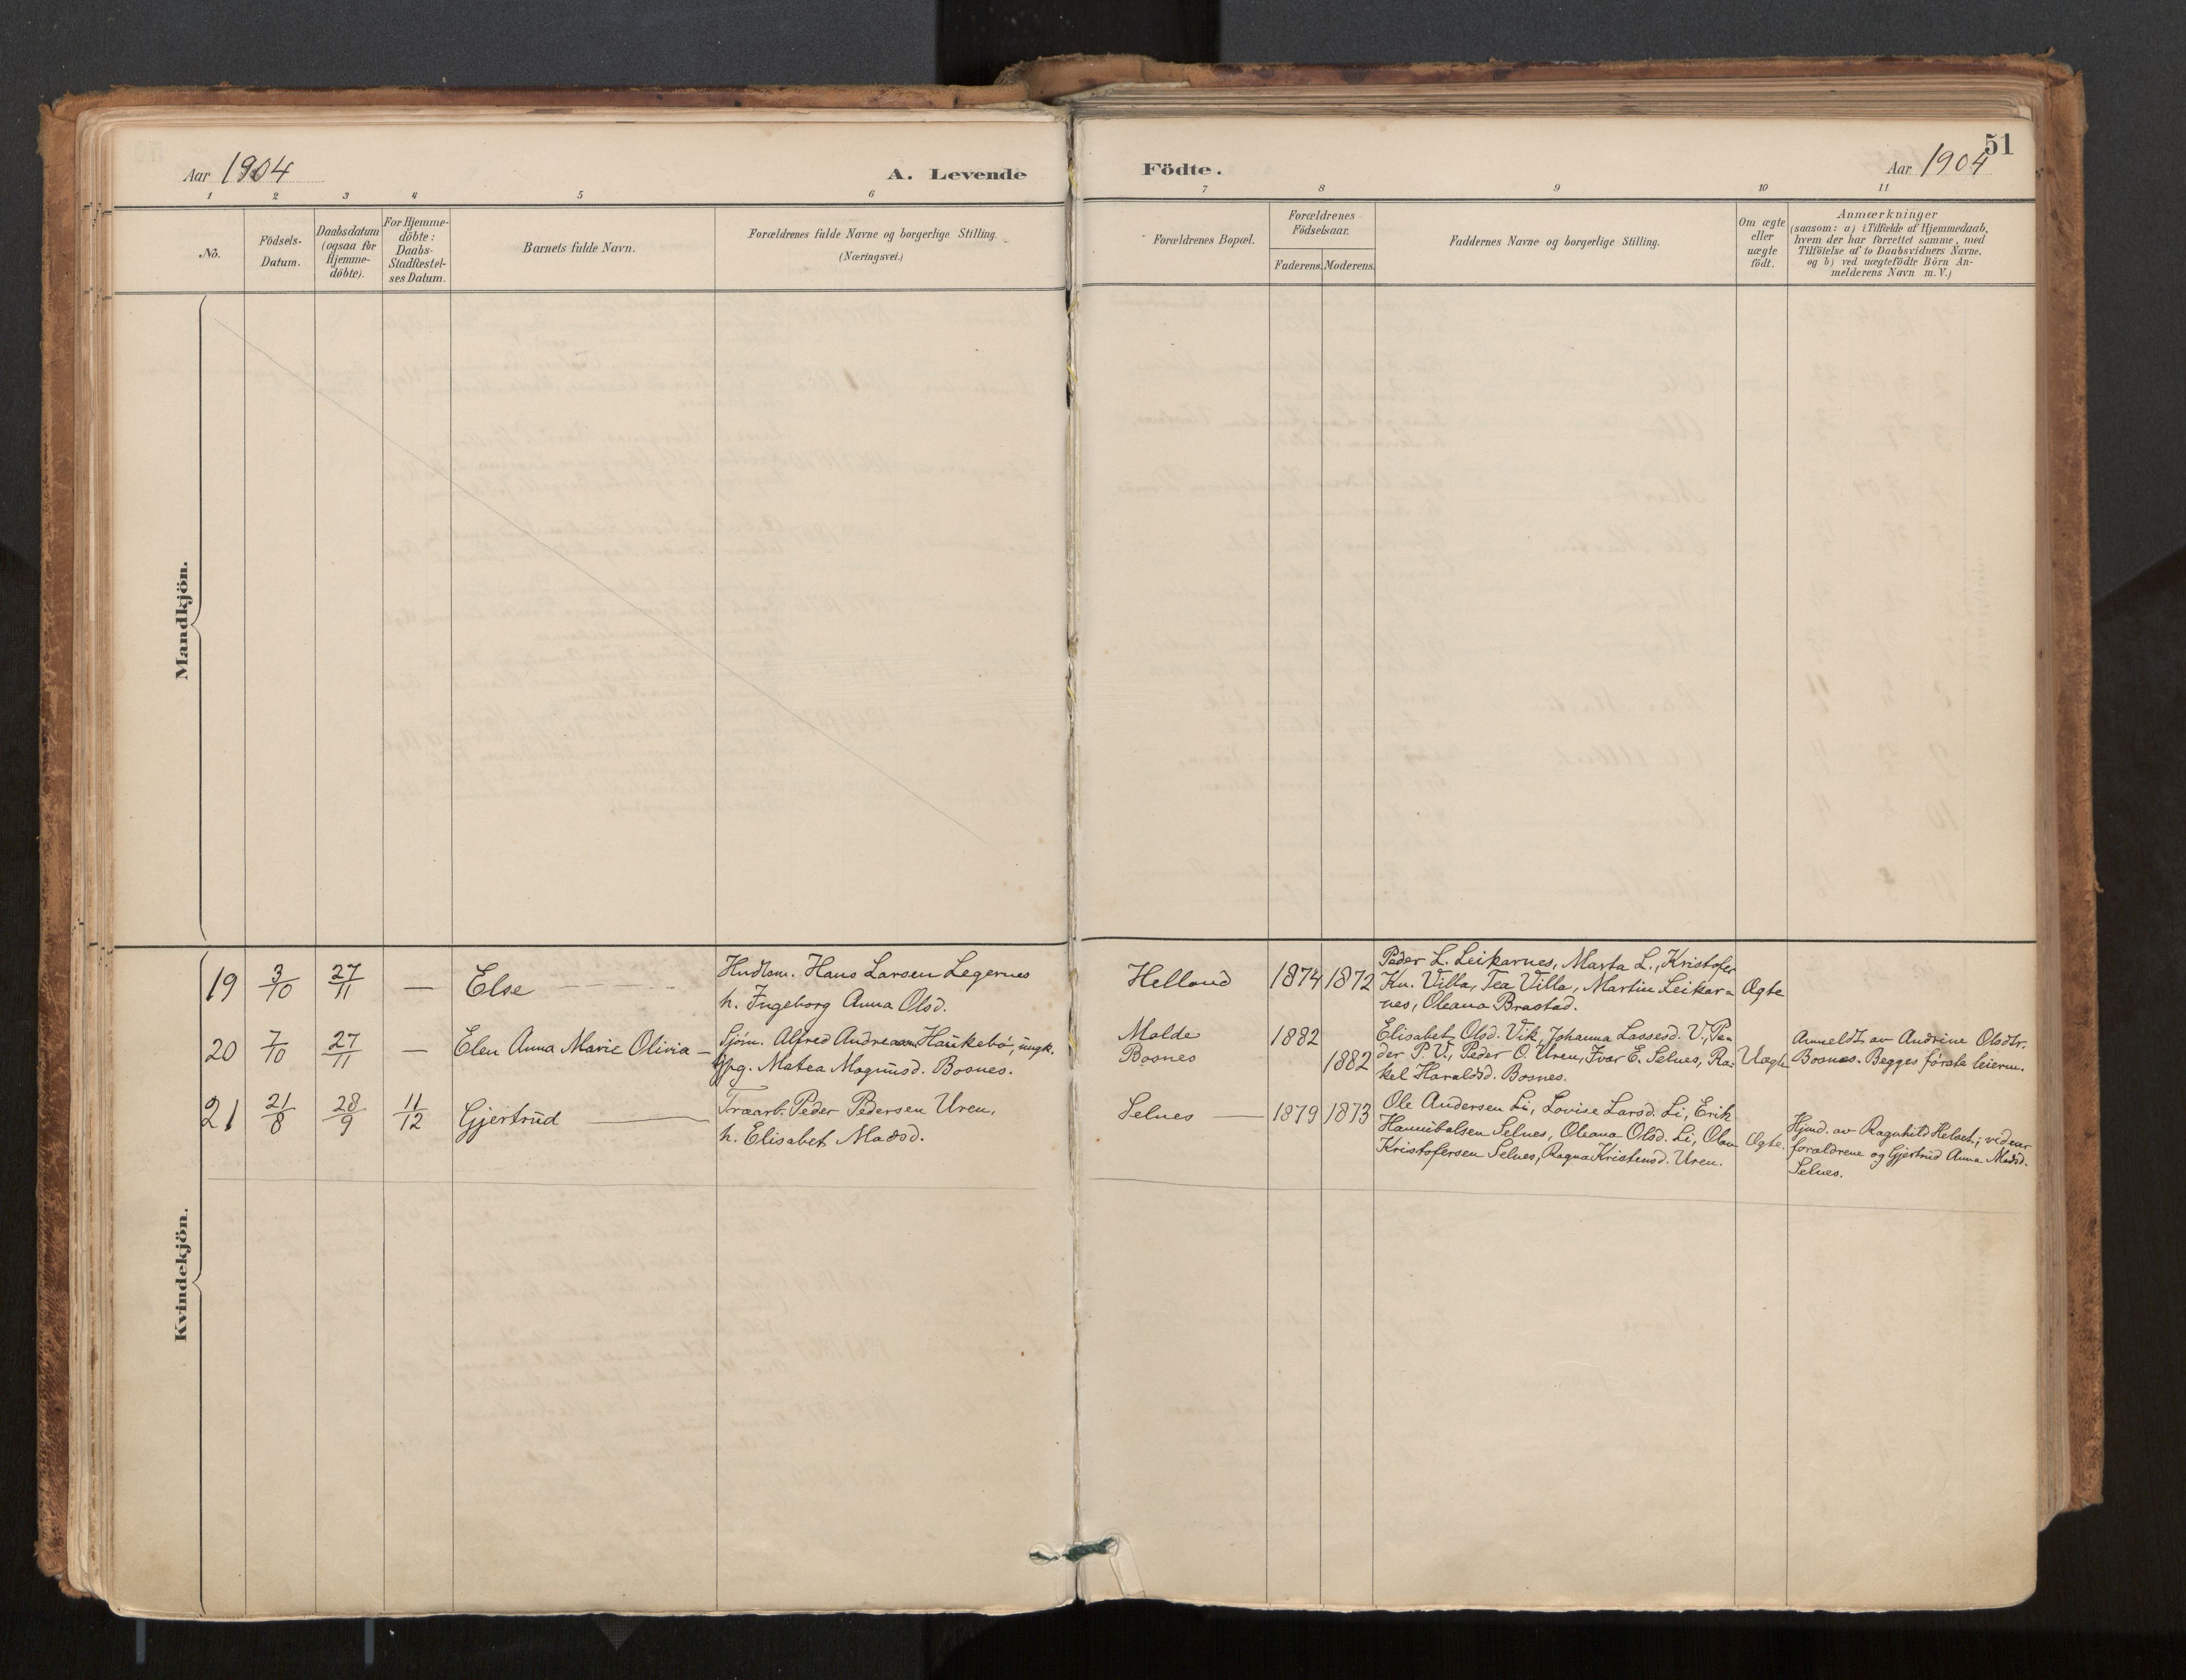 Aar 1904
A. Levende
1 2 3 4 5 6
No.
Födsels-
Datum.
Daabsdatum
(ogsaa for
Hjemme-
döbte).
For Hjemme-
döbte:
Daabs-
Stadfæstel-
ses Datum.
Barnets fulde Navn.
Forældrenes fulde Navne og borgerlige Stilling.
(Næringsvei.)
Mandkjön.
19 3/10 27/11 — Else
Hans Larsen Legernes
h. Ingeborg Anna Olsd.
20 7/10 27/11 — Elen Anna Marie Olivia —
Sjöm. Alfred Andreasen Haukebö, ungk.
Pg. Matea Magnusd. Bosnes.
21 21/8 28/9 11/12 Gjertrud
Træarb. Peder Pedersen Uren,
h. Elisabet Madsd.
Kvindekjön.
51
Födte.
Aar 1904
7 8 9 10 11
Forældrenes Bopæl.
Forældrenes
Födselsaar.
Faderens. Moderens.
Faddernes Navne og borgerlige Stilling.
Om ægte
eller
uægte
födt.
Anmærkninger
(saasom: a) i Tilfælde af Hjemmedaab,
hvem der har forrettet samme, med
Tilföielse af to Daabsvidners Navne,
og b) ved uægtefödte Börn An-
melderens Navn m. V.)
Helland 1874 1872
Peder L. Leikarnes, Marta L., Kristofer
Kn. Villa, Tea Villa, Martin Leikar-
nes, Oleana Brastad.
Ægte
Molde 1882
Bosnes 1882
Elisabet Olsd. Vik, Johanna Lassesd. V., Pe-
der P. V., Peder O. Uren, Ivar E. Selnes, Ra-
kel Haraldsd. Bosnes.
Uægte
Anmeldt av Andrine Olsdtr.
Bosnes. Begges förste leierm.
Selnes 1879 1873
Ole Andersen Li, Lovise Larsd. Li, Erik
Hannibalsen Selnes, Oleana Olsd. Li, Olav
Kristofersen Selnes, Ragna Kristensd. Uren.
Ægte.
Hjmd. av Ragnhild Helset; vidner
forældrene og Gjertrud Anna Madsd.
Selnes.